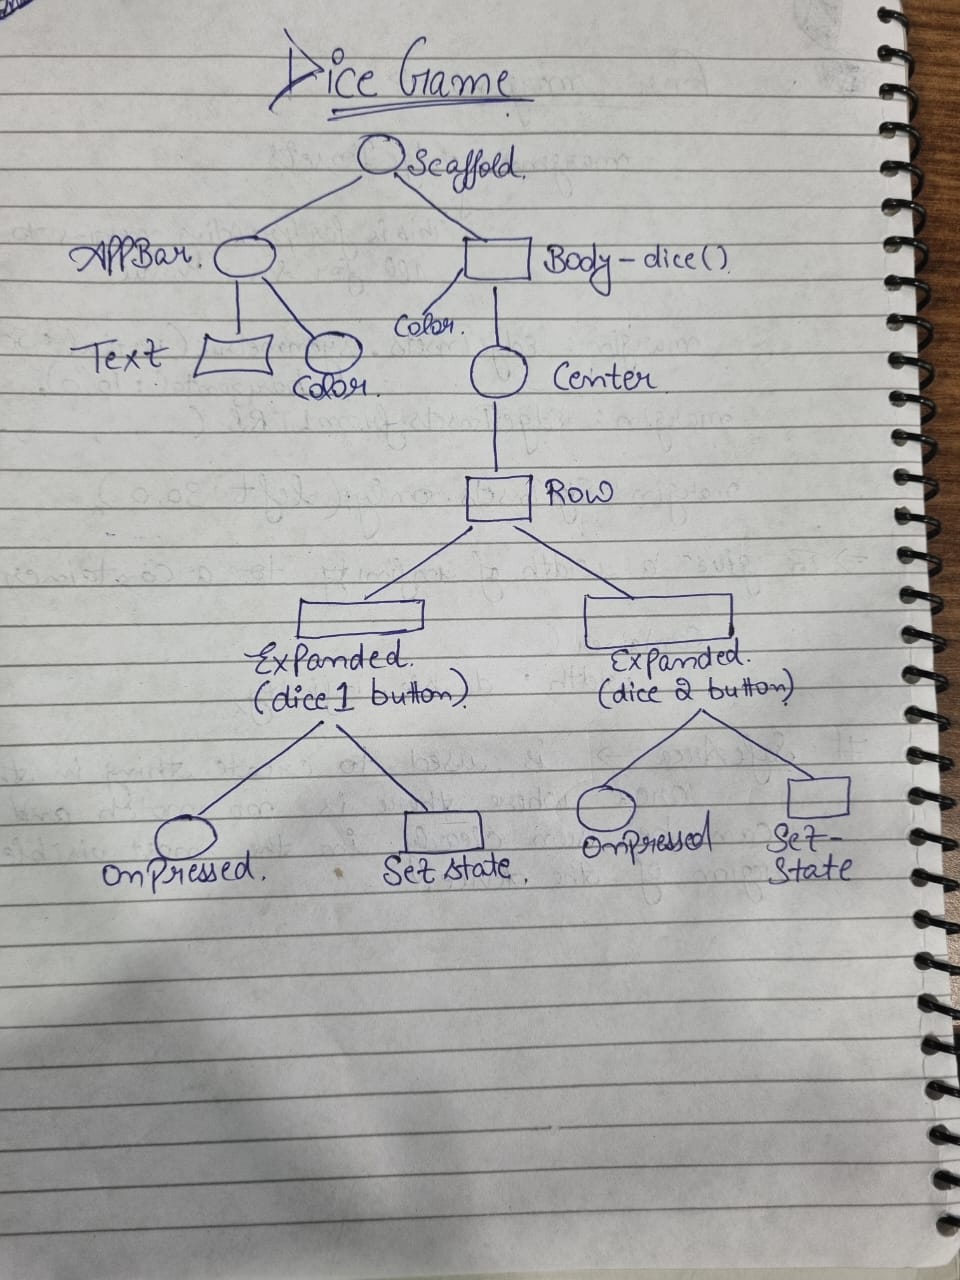 Dice Game
Scaffold.
AppBar.
Body-dice()
Color.
Text
Color.
Center
Row
Expanded.
(dice 1 button)
Expanded.
(dice 2 button)
OnPressed.
Set state.
OnPressed
Set-
State